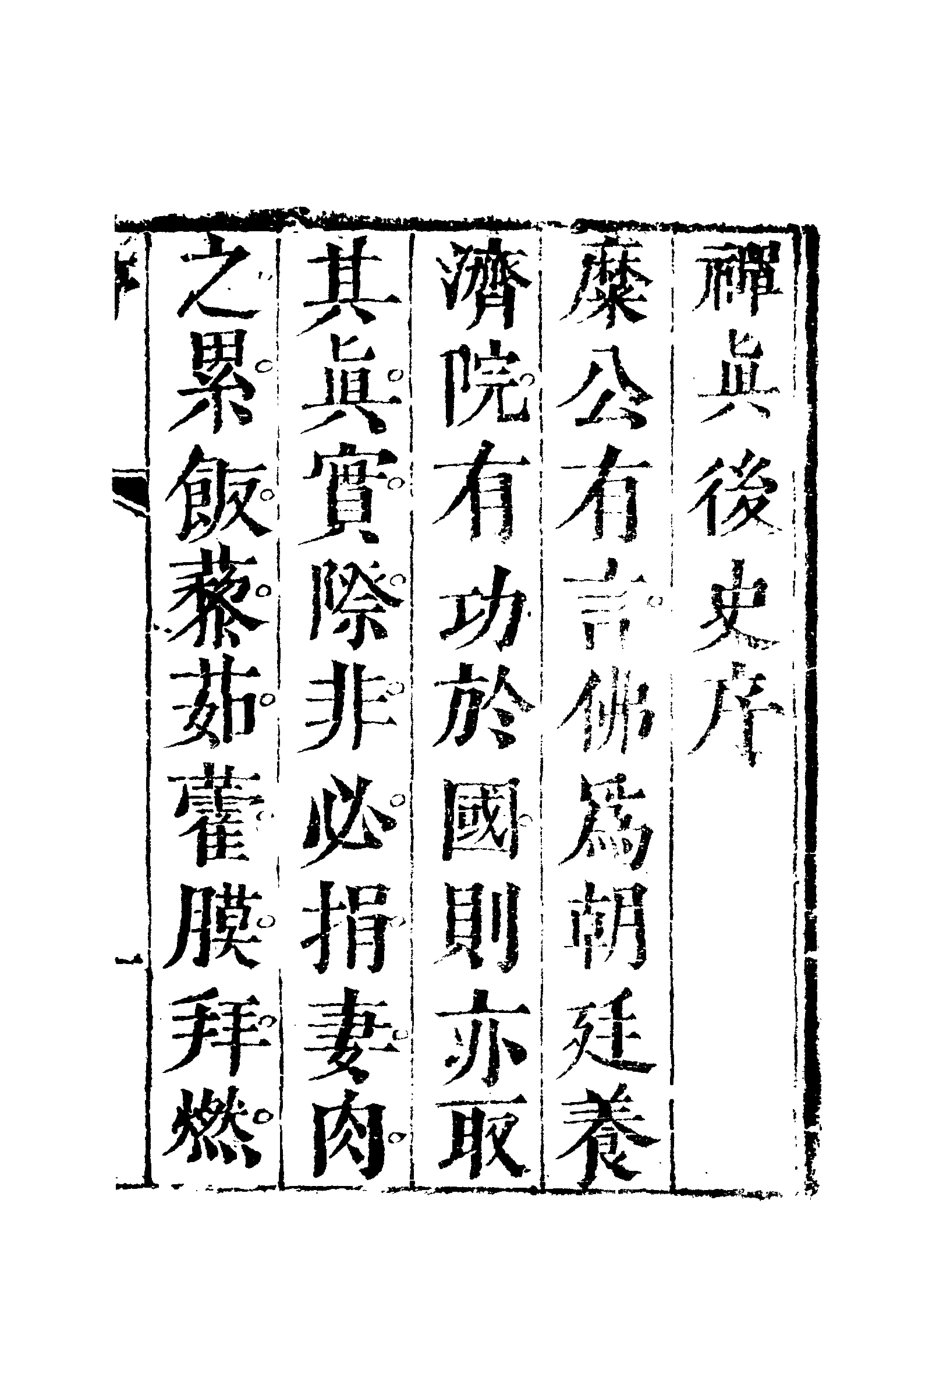 禪眞後史序
麋公有言佛爲朝廷養
濟院有功於國則亦取
其眞實際非必捐妻肉
之累飯藜茹藿膜拜燃